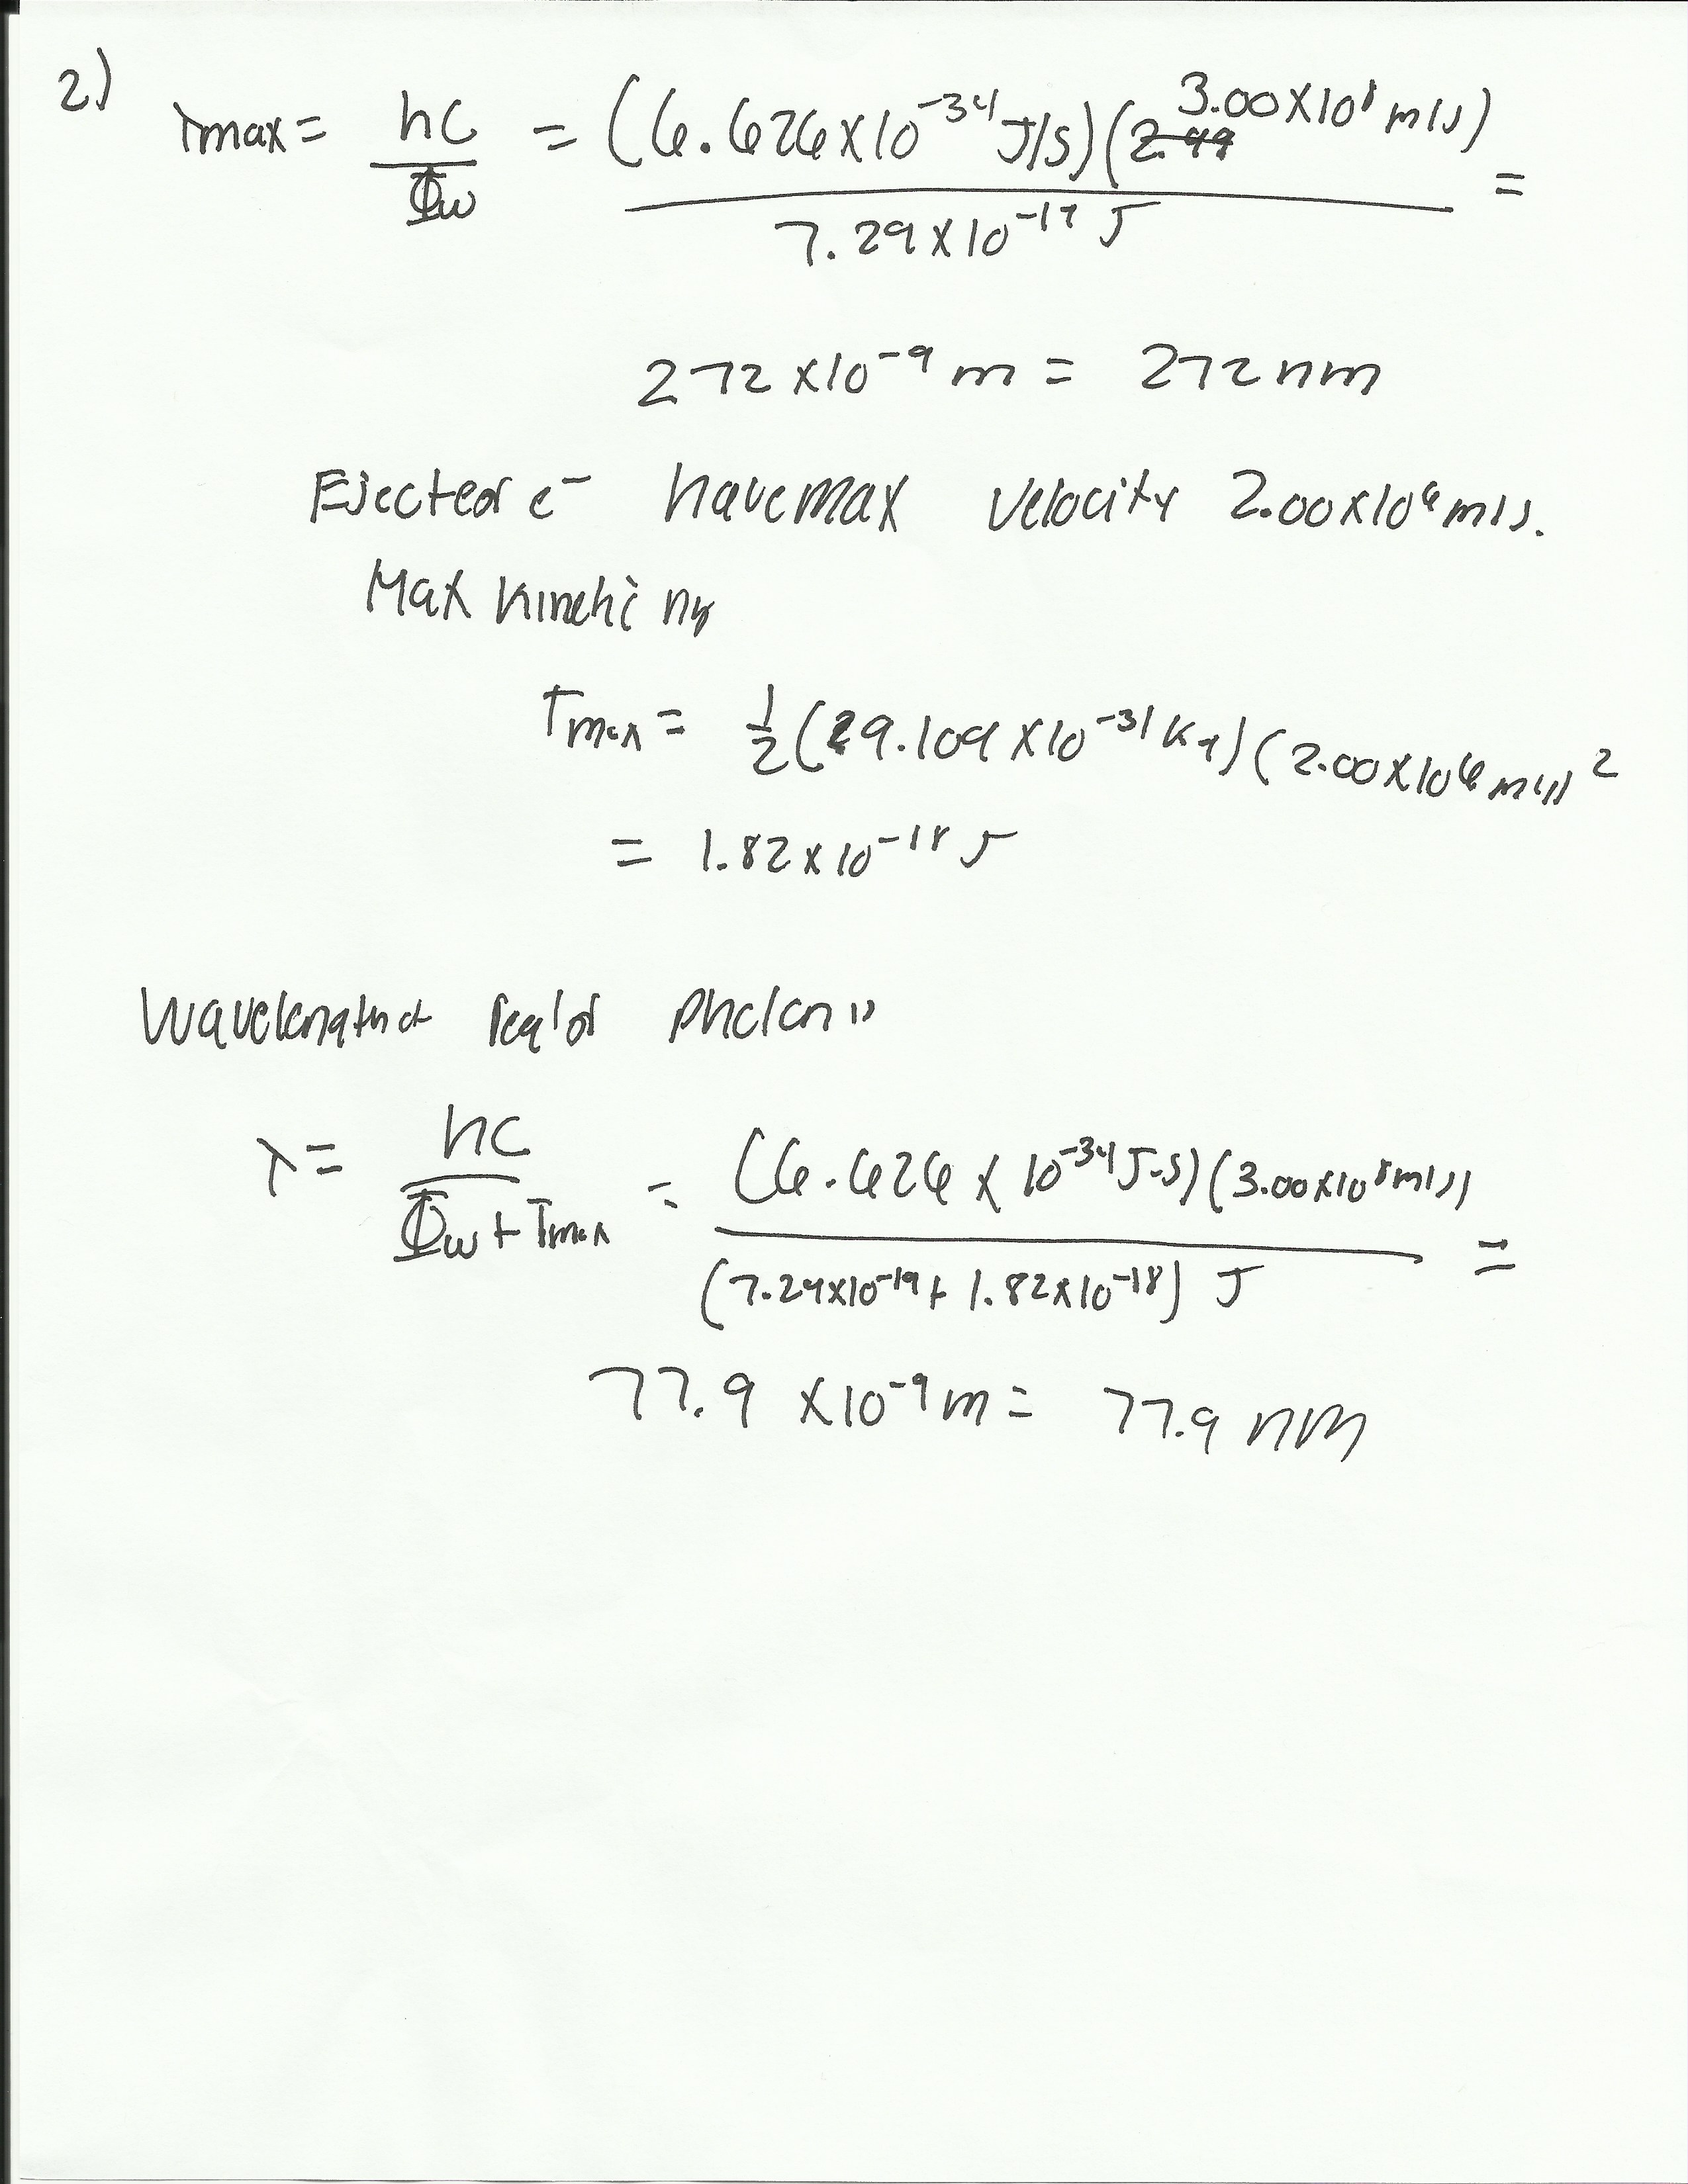 2)
λmax = hc/Φw = (6.626x10^-34 J/s)(2.99 3.00x10^8 m/s) / 7.29x10^-19 J =
272 x10^-9 m = 272 nm
Ejected e^- have max velocity 2.00x10^6 m/s.
Max kinetic
Tmax = 1/2 (9.109 x10^-31 kg)(2.00x10^6 m/s)^2
= 1.82x10^-18 J
Wavelength of req'd photon is
λ = hc/(Φw + Tmax) = (6.626 x 10^-34 J-s)(3.00x10^8 m/s) / (7.29x10^-19 + 1.82x10^-18) J =
77.9 x10^-9 m = 77.9 nm